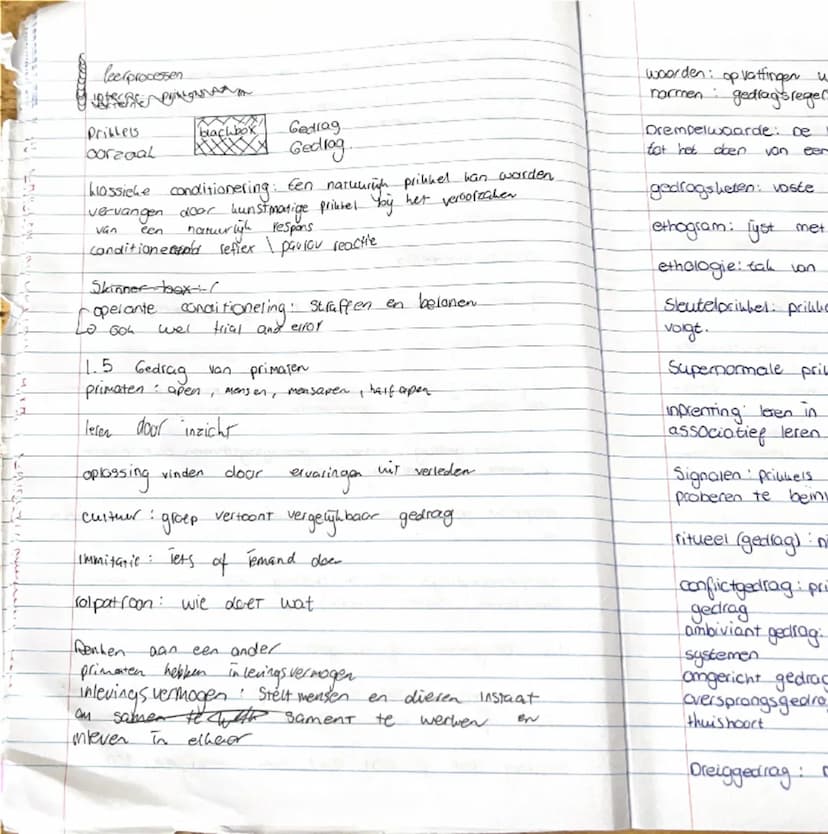 leerprocessen
Prikkels blackbox Gedrag
oorzaak Gedrag.
klassieke conditionering: Een natuurlijk prikkel kan worden
vervangen door kunstmatige prikkel bij het veroorzaken
van een natuurlijk respons
reflex \ pavlov reactie
Skinner box :
operante conditionering: Straffen en belonen
Ook wel trial and error
1.5 Gedrag van primaten
primaten : apen, mensen, mensapen, halfapen
leren door inzicht
oplossing vinden door ervaringen uit verleden
cultuur : groep vertoont vergelijkbaar gedrag
immitatie : iets of iemand doen
rolpatroon : wie doet wat
Denken aan een ander
primaten hebben inlevingsvermogen
inlevingsvermogen : Stelt mensen en dieren instaat
om sament te werken en
inleven in elkaar
waarden: opvattingen
normen : gedragsregel
Drempelwaarde: De
tot het doen van een
gedragsketen: vaste
ethogram: lijst met
ethologie: tak van
Sleutelprikkel: prikke
volgt.
Supernormale prik
inprenting: leren in
associatief leren
Signalen : prikkels
proberen te beïn
ritueel (gedrag) : n
conflictgedrag : pri
gedrag
ambiviant gedrag:
systemen
omgericht gedrag
oversprongsgedra
thuishoort
Dreiggedrag :